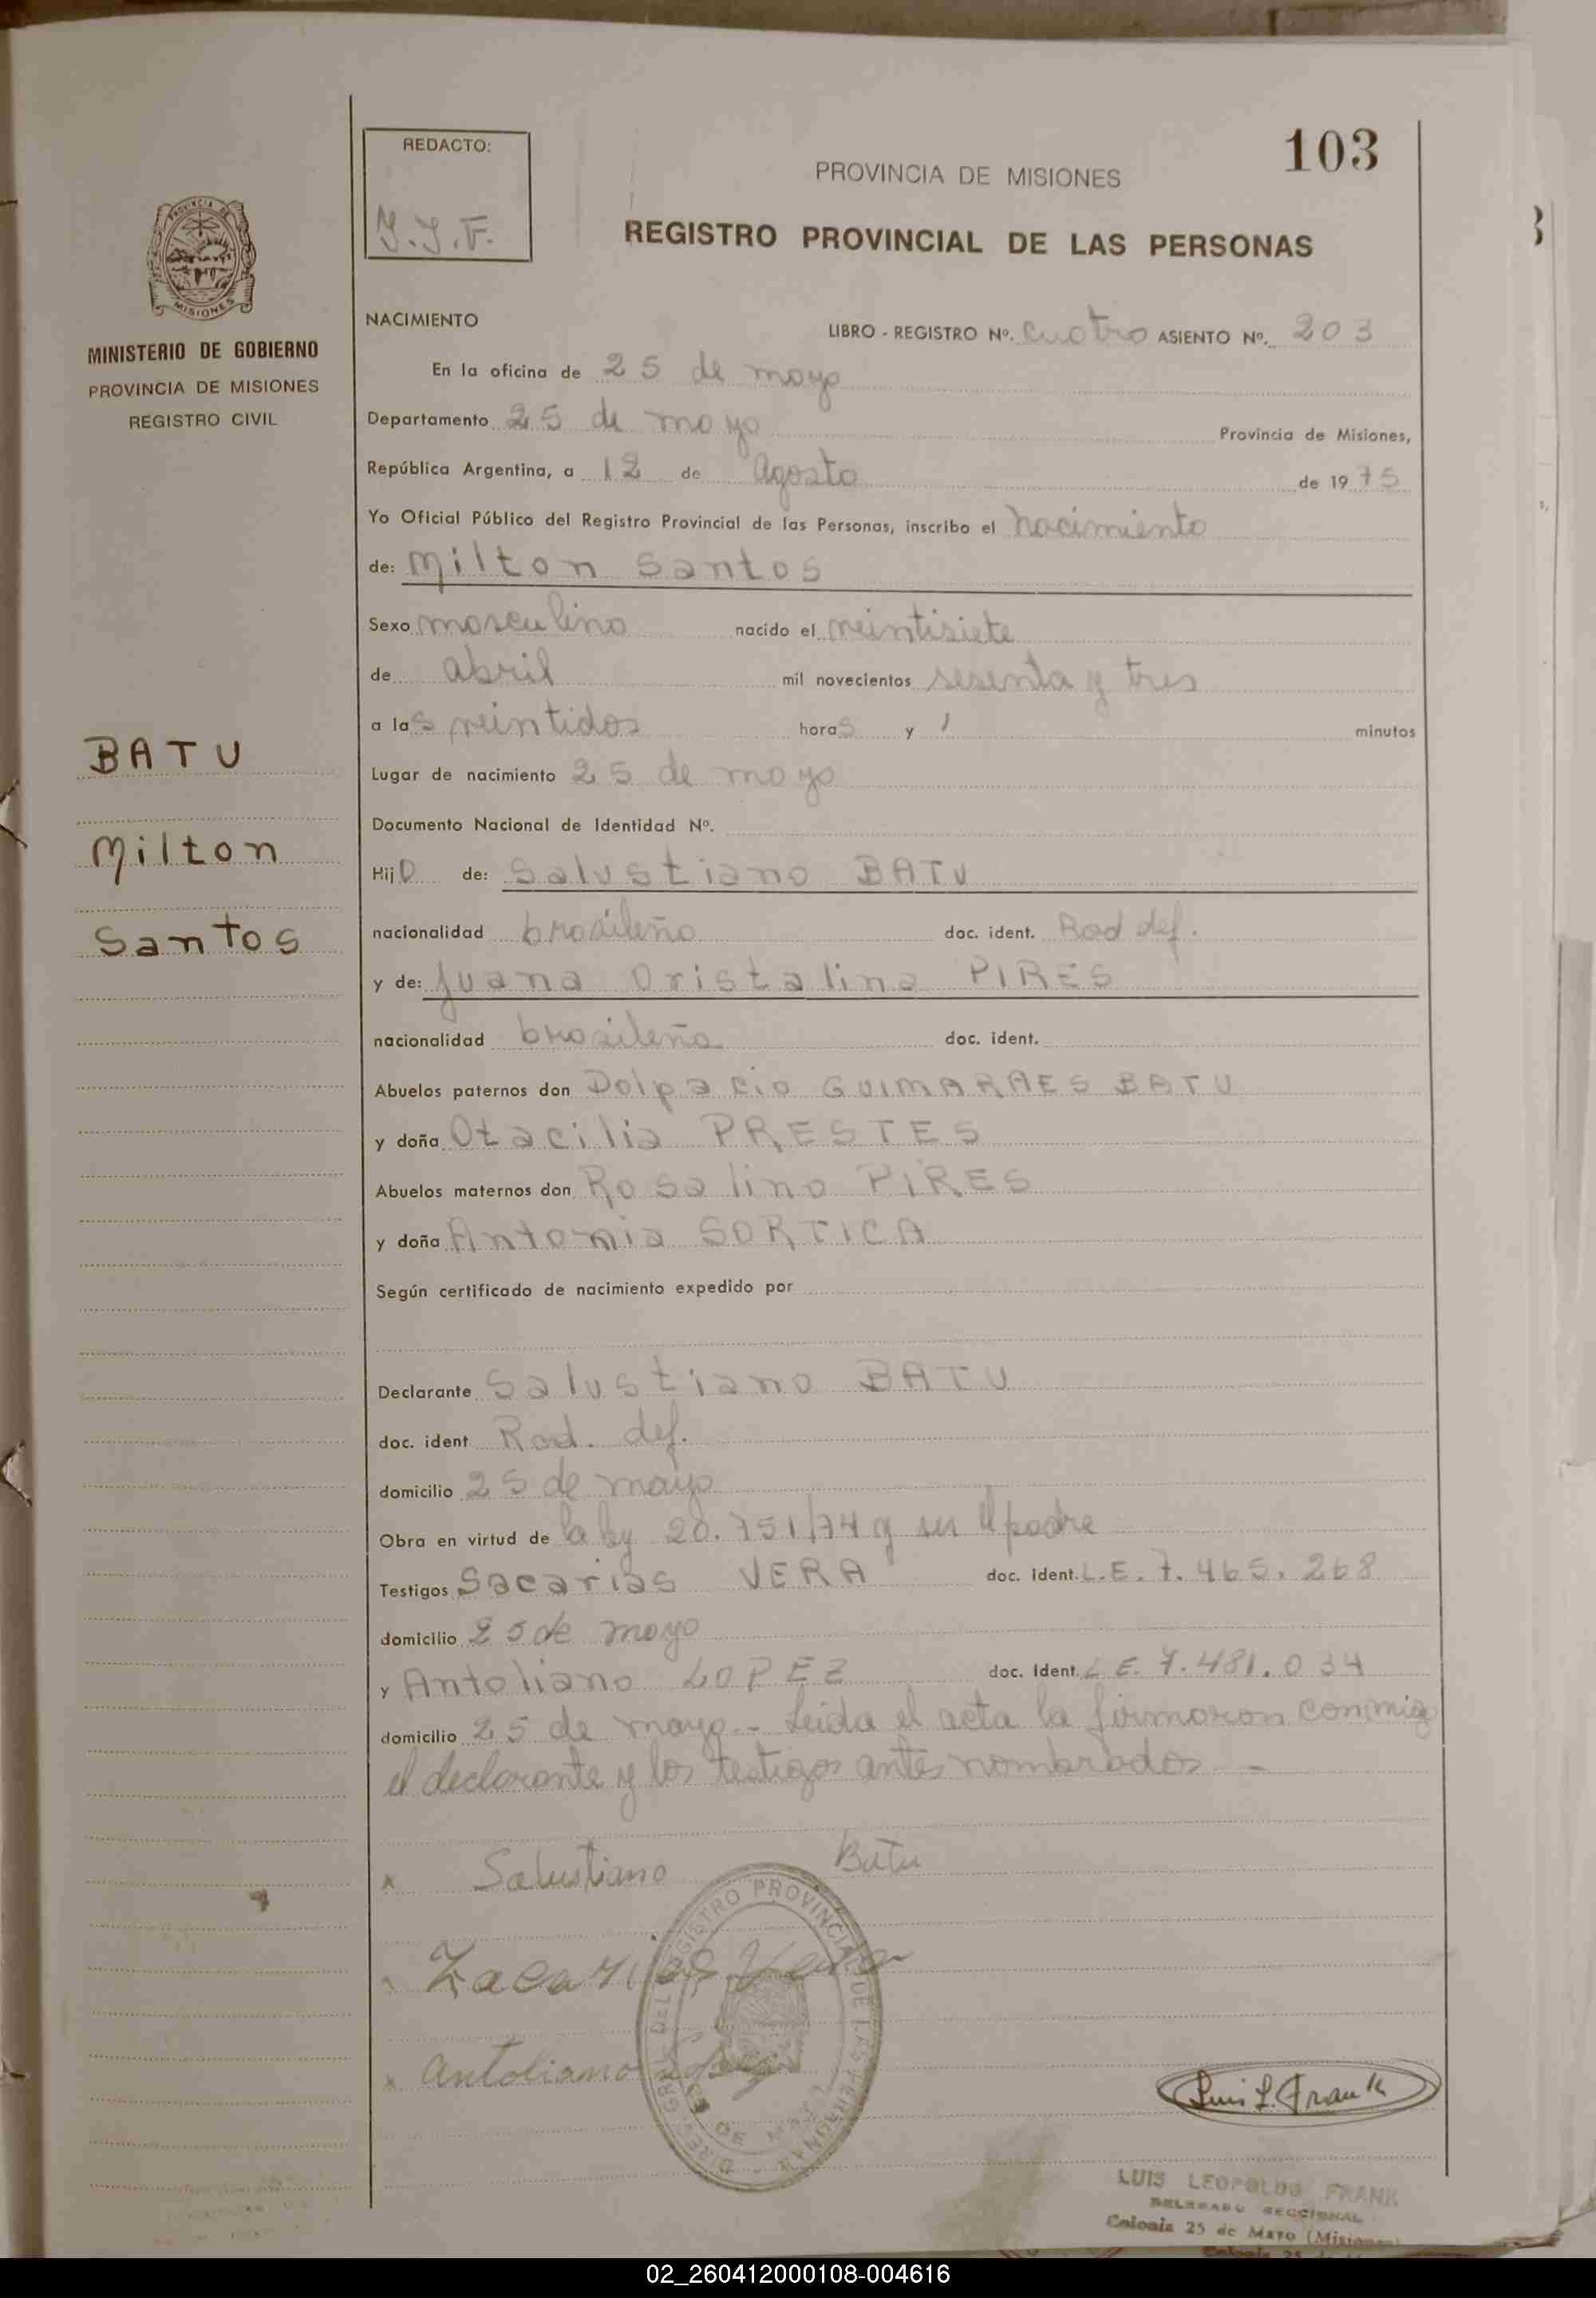 103
REDACTO:
J.J.F.
PROVINCIA DE MISIONES
REGISTRO PROVINCIAL DE LAS PERSONAS
PROVINCIA DE
MISIONES
MINISTERIO DE GOBIERNO
PROVINCIA DE MISIONES
REGISTRO CIVIL
BATU
Milton
Santos
NACIMIENTO
LIBRO - REGISTRO Nº. cuatro ASIENTO Nº. 203
En la oficina de 25 de mayo
Departamento 25 de mayo Provincia de Misiones,
República Argentina, a 12 de Agosto de 1975
Yo Oficial Público del Registro Provincial de las Personas, inscribo el nacimiento
de: Milton Santos
Sexo masculino nacido el veintisiete
de abril mil novecientos sesenta y tres
a las veintidos horas y / minutos
Lugar de nacimiento 25 de mayo
Documento Nacional de Identidad Nº.
Hijo de: Salustiano BATU
nacionalidad brasileño doc. ident. Rad def.
y de: Juana Oristalina PIRES
nacionalidad brasileña doc. ident.
Abuelos paternos don Dolpacio GUIMARAES BATU
y doña Otacilia PRESTES
Abuelos maternos don Rosalino PIRES
y doña Antonia SORTICA
Según certificado de nacimiento expedido por
Declarante Salustiano BATU
doc. ident Rad. def.
domicilio 25 de mayo
Obra en virtud de la ley 20.751/74 y ser el padre
Testigos Sacarias VERA doc. ident. L.E. 7.465.268
domicilio 25 de mayo
y Antoliano LOPEZ doc. Ident. L E. 7.481.034
domicilio 25 de mayo.- Leida el acta la firmaron conmigo
el declarante y los testigos antes nombrados -
x Salustiano Batu
Zacarias Vera
x Antoliano Lopez
Luis L. Frank
LUIS LEOPOLDO FRANK
DELEGADO SECCIONAL
Colonia 25 de Mayo (Misiones)
02_260412000108-004616